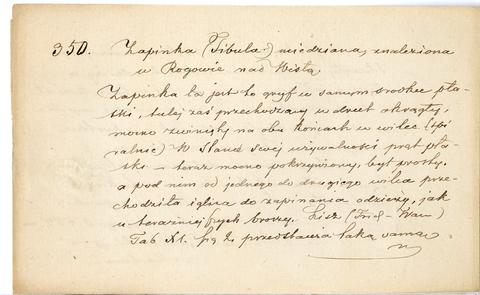 350. Zapinka (Fibula) miedziana, znaleziona
w Rogowie nad Wisłą,
Zapinka ta jest to gryf w samym środku pła-
ski, tutej zaś przechodzący w drut okrągły,
mocno zwinięty na obu końcach w wilec (spi-
ralnie) W stanie swej używalności pręt pła-
ski – teraz mocno pokrzywiony, był prosty,
a pod nim od jednego do drugiego wilca prze-
chodziła iglica do zapinania odzieży, jak
u teraźniejszych broszy. Lisz (Frid – Wan)
Tab XI. fig 2. przedstawia taką samą